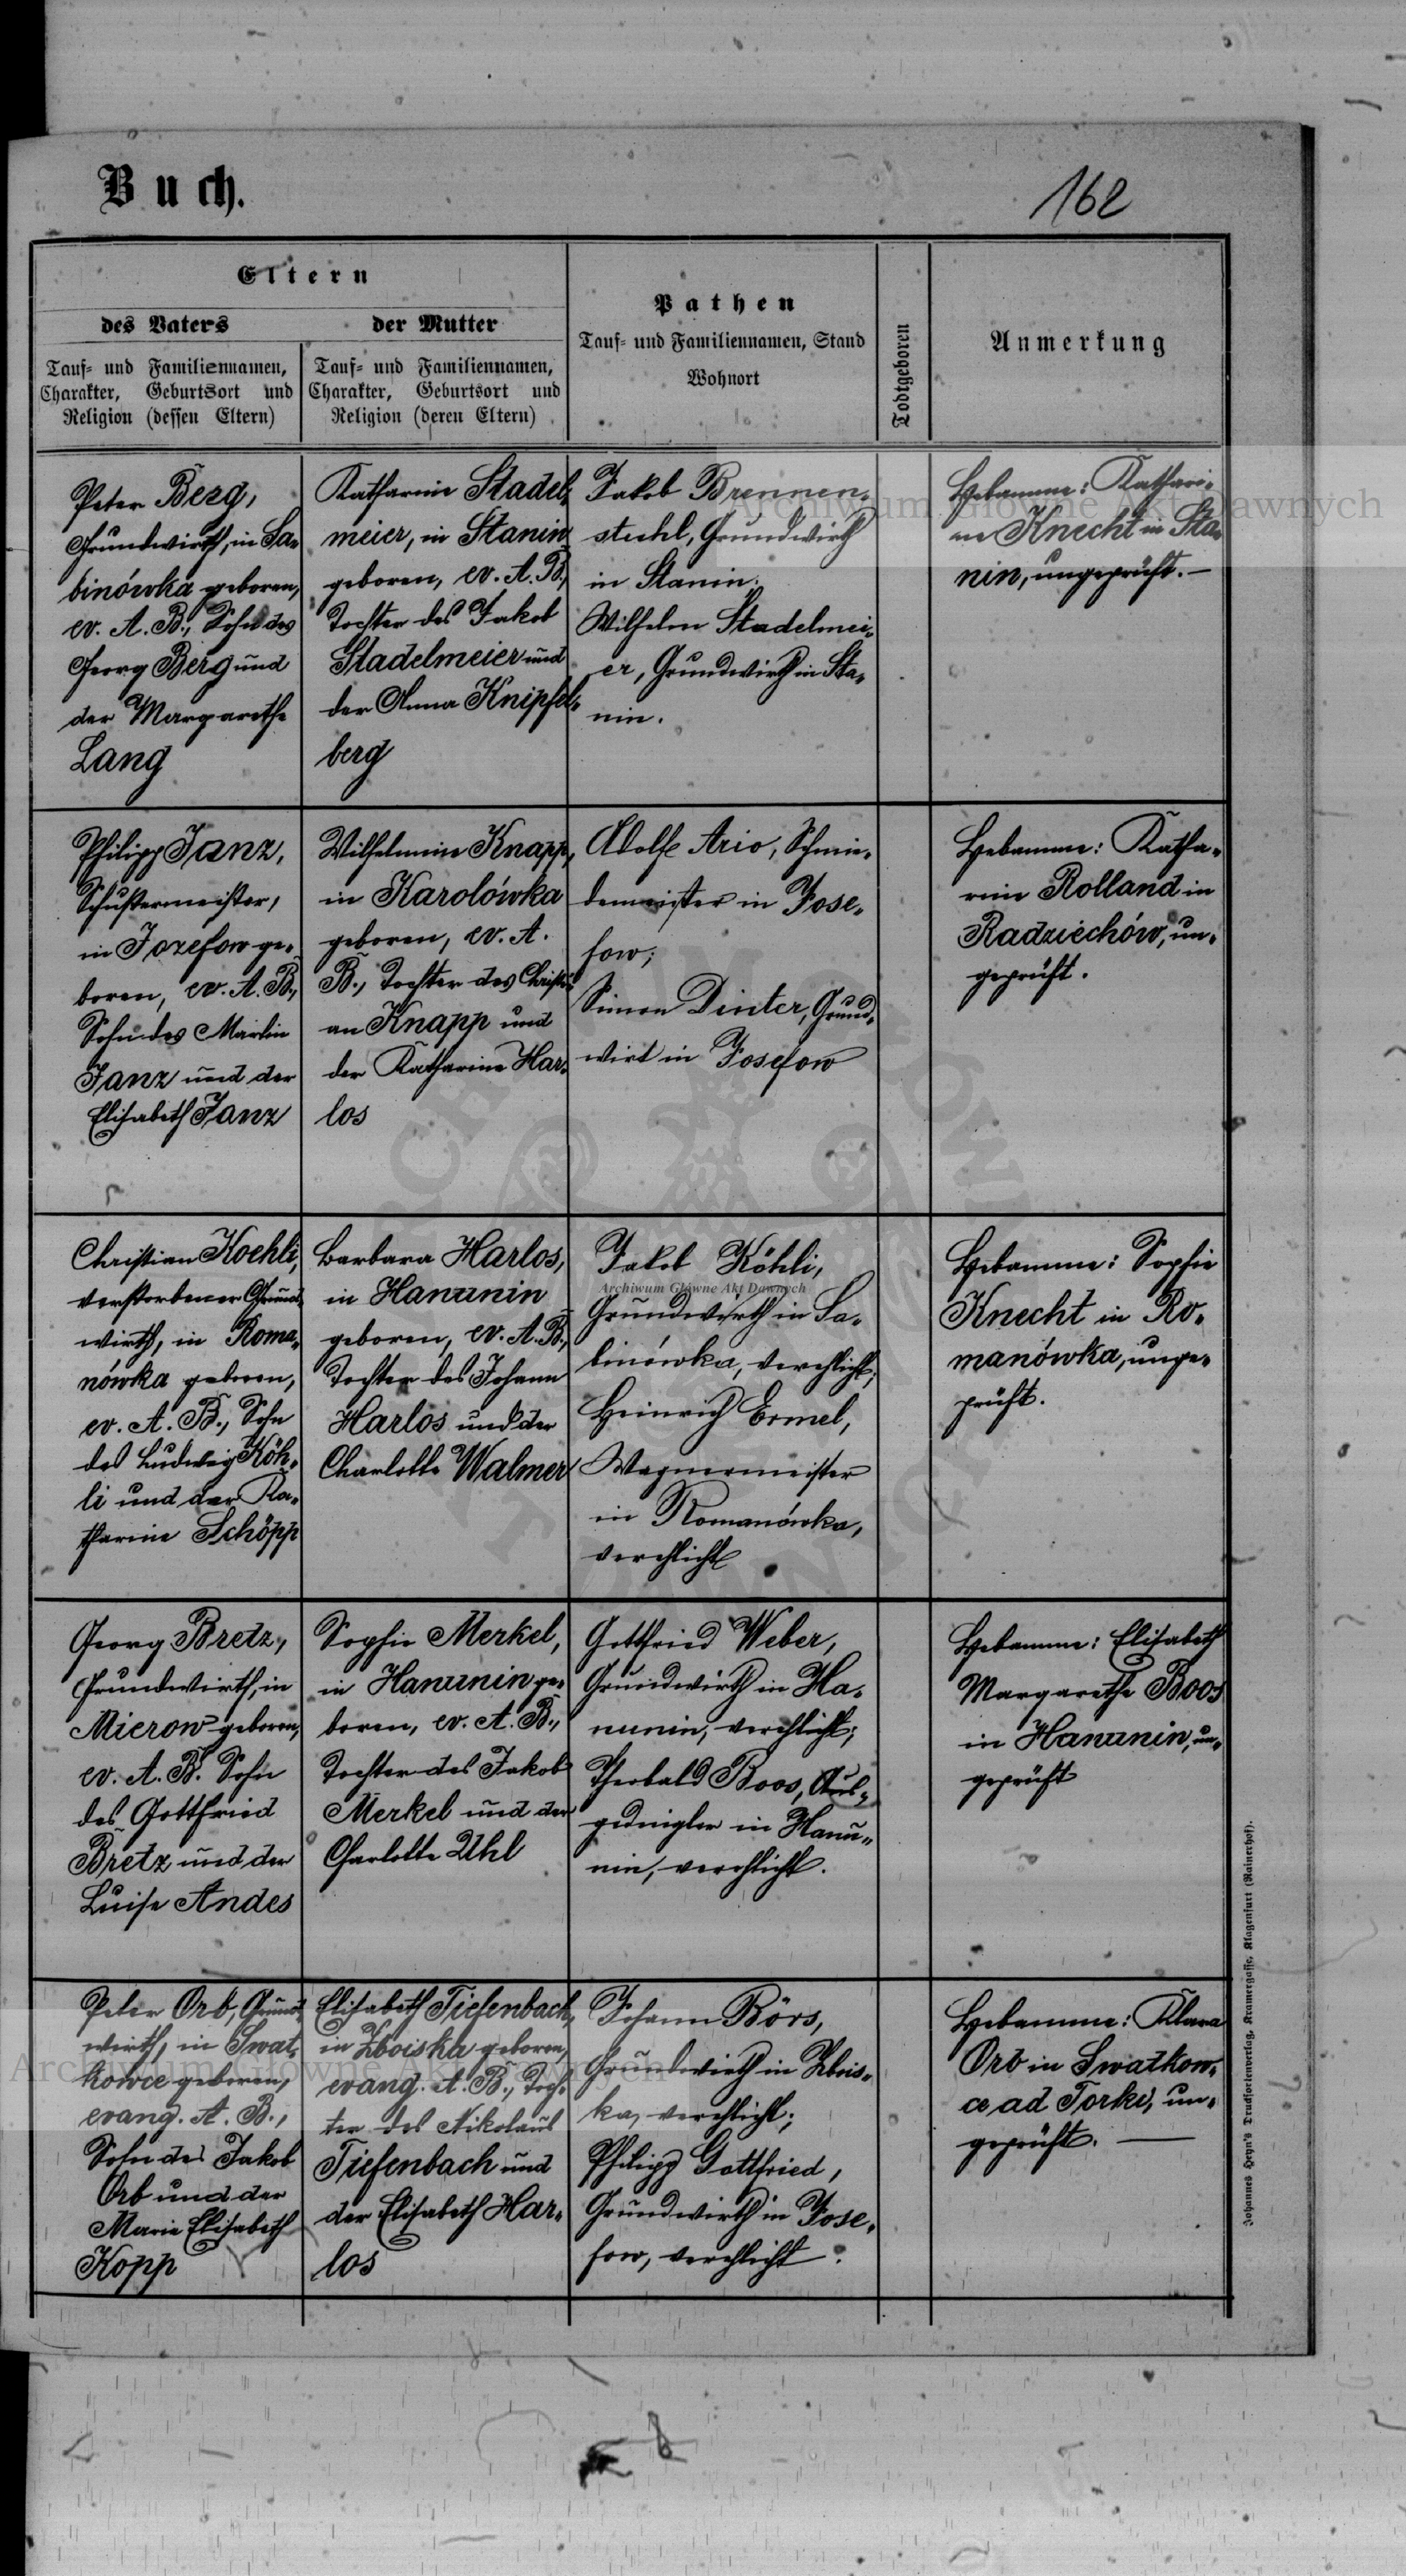 Buch.
162
Eltern
des Vaters
der Mutter
Tauf- und Familiennamen,
Charakter, Geburtsort und
Religion (dessen Eltern)
Tauf- und Familiennamen,
Charakter, Geburtsort und
Religion (deren Eltern)
Pathen
Tauf- und Familiennamen, Stand
Wohnort
Todtgeboren
Anmerkung
Peter Berg,
Grundwirth, in Sa-
binówka geboren,
ev. A. B., Sohn des
Georg Berg und
der Margarethe
Lang
Katharine Stadel-
meier, in Stanin
geboren, ev. A. B.,
Tochter des Jakob
Stadelmeier und
der Anna Knipfel-
berg
Jakob Brennen-
stuhl, Grundwirth
in Stanin;
Wilhelm Stadelmei-
er, Grundwirth in Sta-
nin.
Hebamme: Kathari-
ne Knecht in Sta-
nin, ungeprüft. —
Philipp Janz,
Schustermeister,
in Jozefow ge-
boren, ev. A. B.,
Sohn des Martin
Janz und der
Elisabeth Janz
Wilhelmine Knapp,
in Karolówka
geboren, ev. A.
B., Tochter des Christi-
an Knapp und
der Katharine Har-
los
Adolf Ario, Schmie-
demeister in Jose-
fow;
Simon Dinter, Grund-
wirt in Josefow
Hebamme: Katha-
rine Rolland in
Radziechów, un-
geprüft.
Christian Koehli,
verstorbener Grund-
wirth, in Roma-
nówka geboren,
ev. A. B., Sohn
des Ludwig Köh-
li und der Ka-
tharine Schöpp
Barbara Harlos,
in Hanunin
geboren, ev. A. B.,
Tochter des Johann
Harlos und der
Charlotte Walmer
Jakob Köhli,
Grundwirth in Sa-
binówka, verehlicht;
Heinrich Ermel,
Wagnermeister
in Romanówka,
verehlicht
Hebamme: Sophie
Knecht in Ro-
manówka, unge-
prüft.
Georg Bretz,
Grundwirth, in
Mierow geboren,
ev. A. B. Sohn
des Gottfried
Bretz und der
Luise Andes
Sophie Merkel,
in Hanunin ge-
boren, ev. A. B.,
Tochter des Jakob
Merkel und der
Charlotte Uhl
Gottfried Weber,
Grundwirth in Ha-
nunin, verehlicht;
Theobald Boos, Aus-
gedingler in Hanu-
nin, verehlicht.
Hebamme: Elisabeth
Margarethe Boos
in Hanunin, un-
geprüft
Peter Orb, Grund-
wirth, in Swat-
kowce geboren,
evang. A. B.,
Sohn des Jakob
Orb und der
Marie Elisabeth
Kopp
Elisabeth Tiefenbach,
in Zboiska geboren,
evang. A. B., Toch-
ter des Nikolaus
Tiefenbach und
der Elisabeth Har-
los
Johann Börs,
Grundwirth in Zbois-
ka, verehlicht;
Philipp Gottfried,
Grundwirth in Jose-
fow, verehlicht.
Hebamme: Klara
Orb in Swatkow-
ce ad Torki, un-
geprüft. —
Johannes Heyn's Drucksortenverlag, Kramergasse, Klagenfurt (Rainerhof).
Archiwum Główne Akt Dawnych
Archiwum Główne Akt Dawnych
Archiwum Główne Akt Dawnych